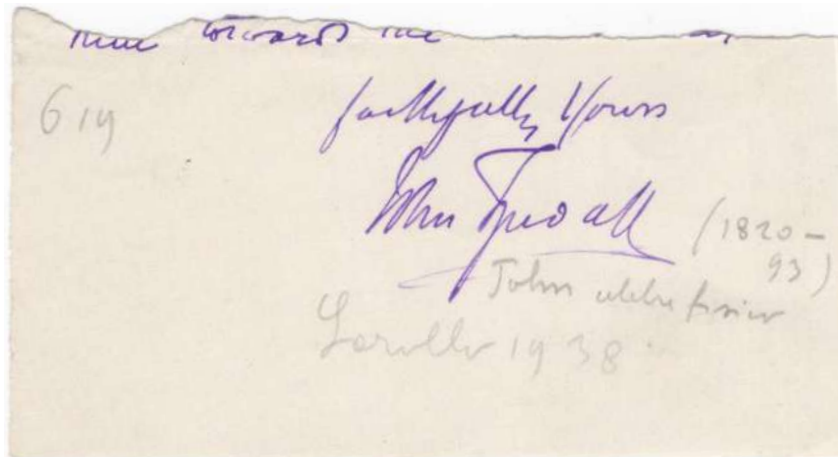 towards the
619
faithfully Yours
John Tyndall
(1820-
93)
John
1938